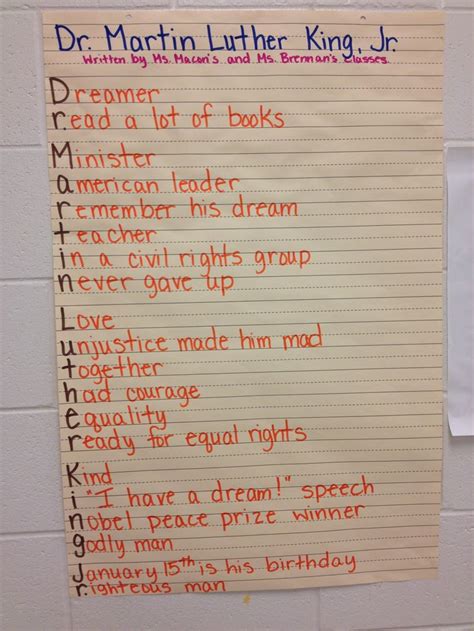 Dr. Martin Luther King, Jr.
Written by Ms. Macon's and Ms. Brennan's Classes.
Dreamer
read a lot of books
Minister
american leader
remember his dream
teacher
in a civil rights group
never gave up
Love
unjustice made him mad
together
had courage
equality
ready for equal rights
Kind
i "I have a dream!" speech
nobel peace prize winner
godly man
January 15th is his birthday
righteous man